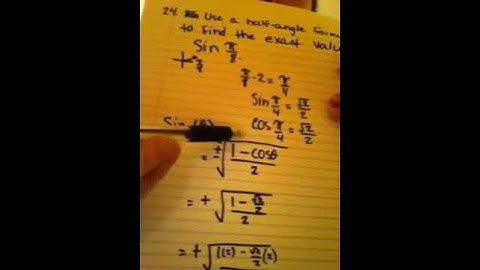 24. Use a half-angle Form
to find the exact valu
Sin π/8.
π/8 · 2 = π/4
Sin π/4 = √2/2
Cos π/4 = √2/2
Sin
= ± √((1 - cosθ)/2)
= + √((1 - √2/2)/2)
= + √(1(2) - √2/2 (2)